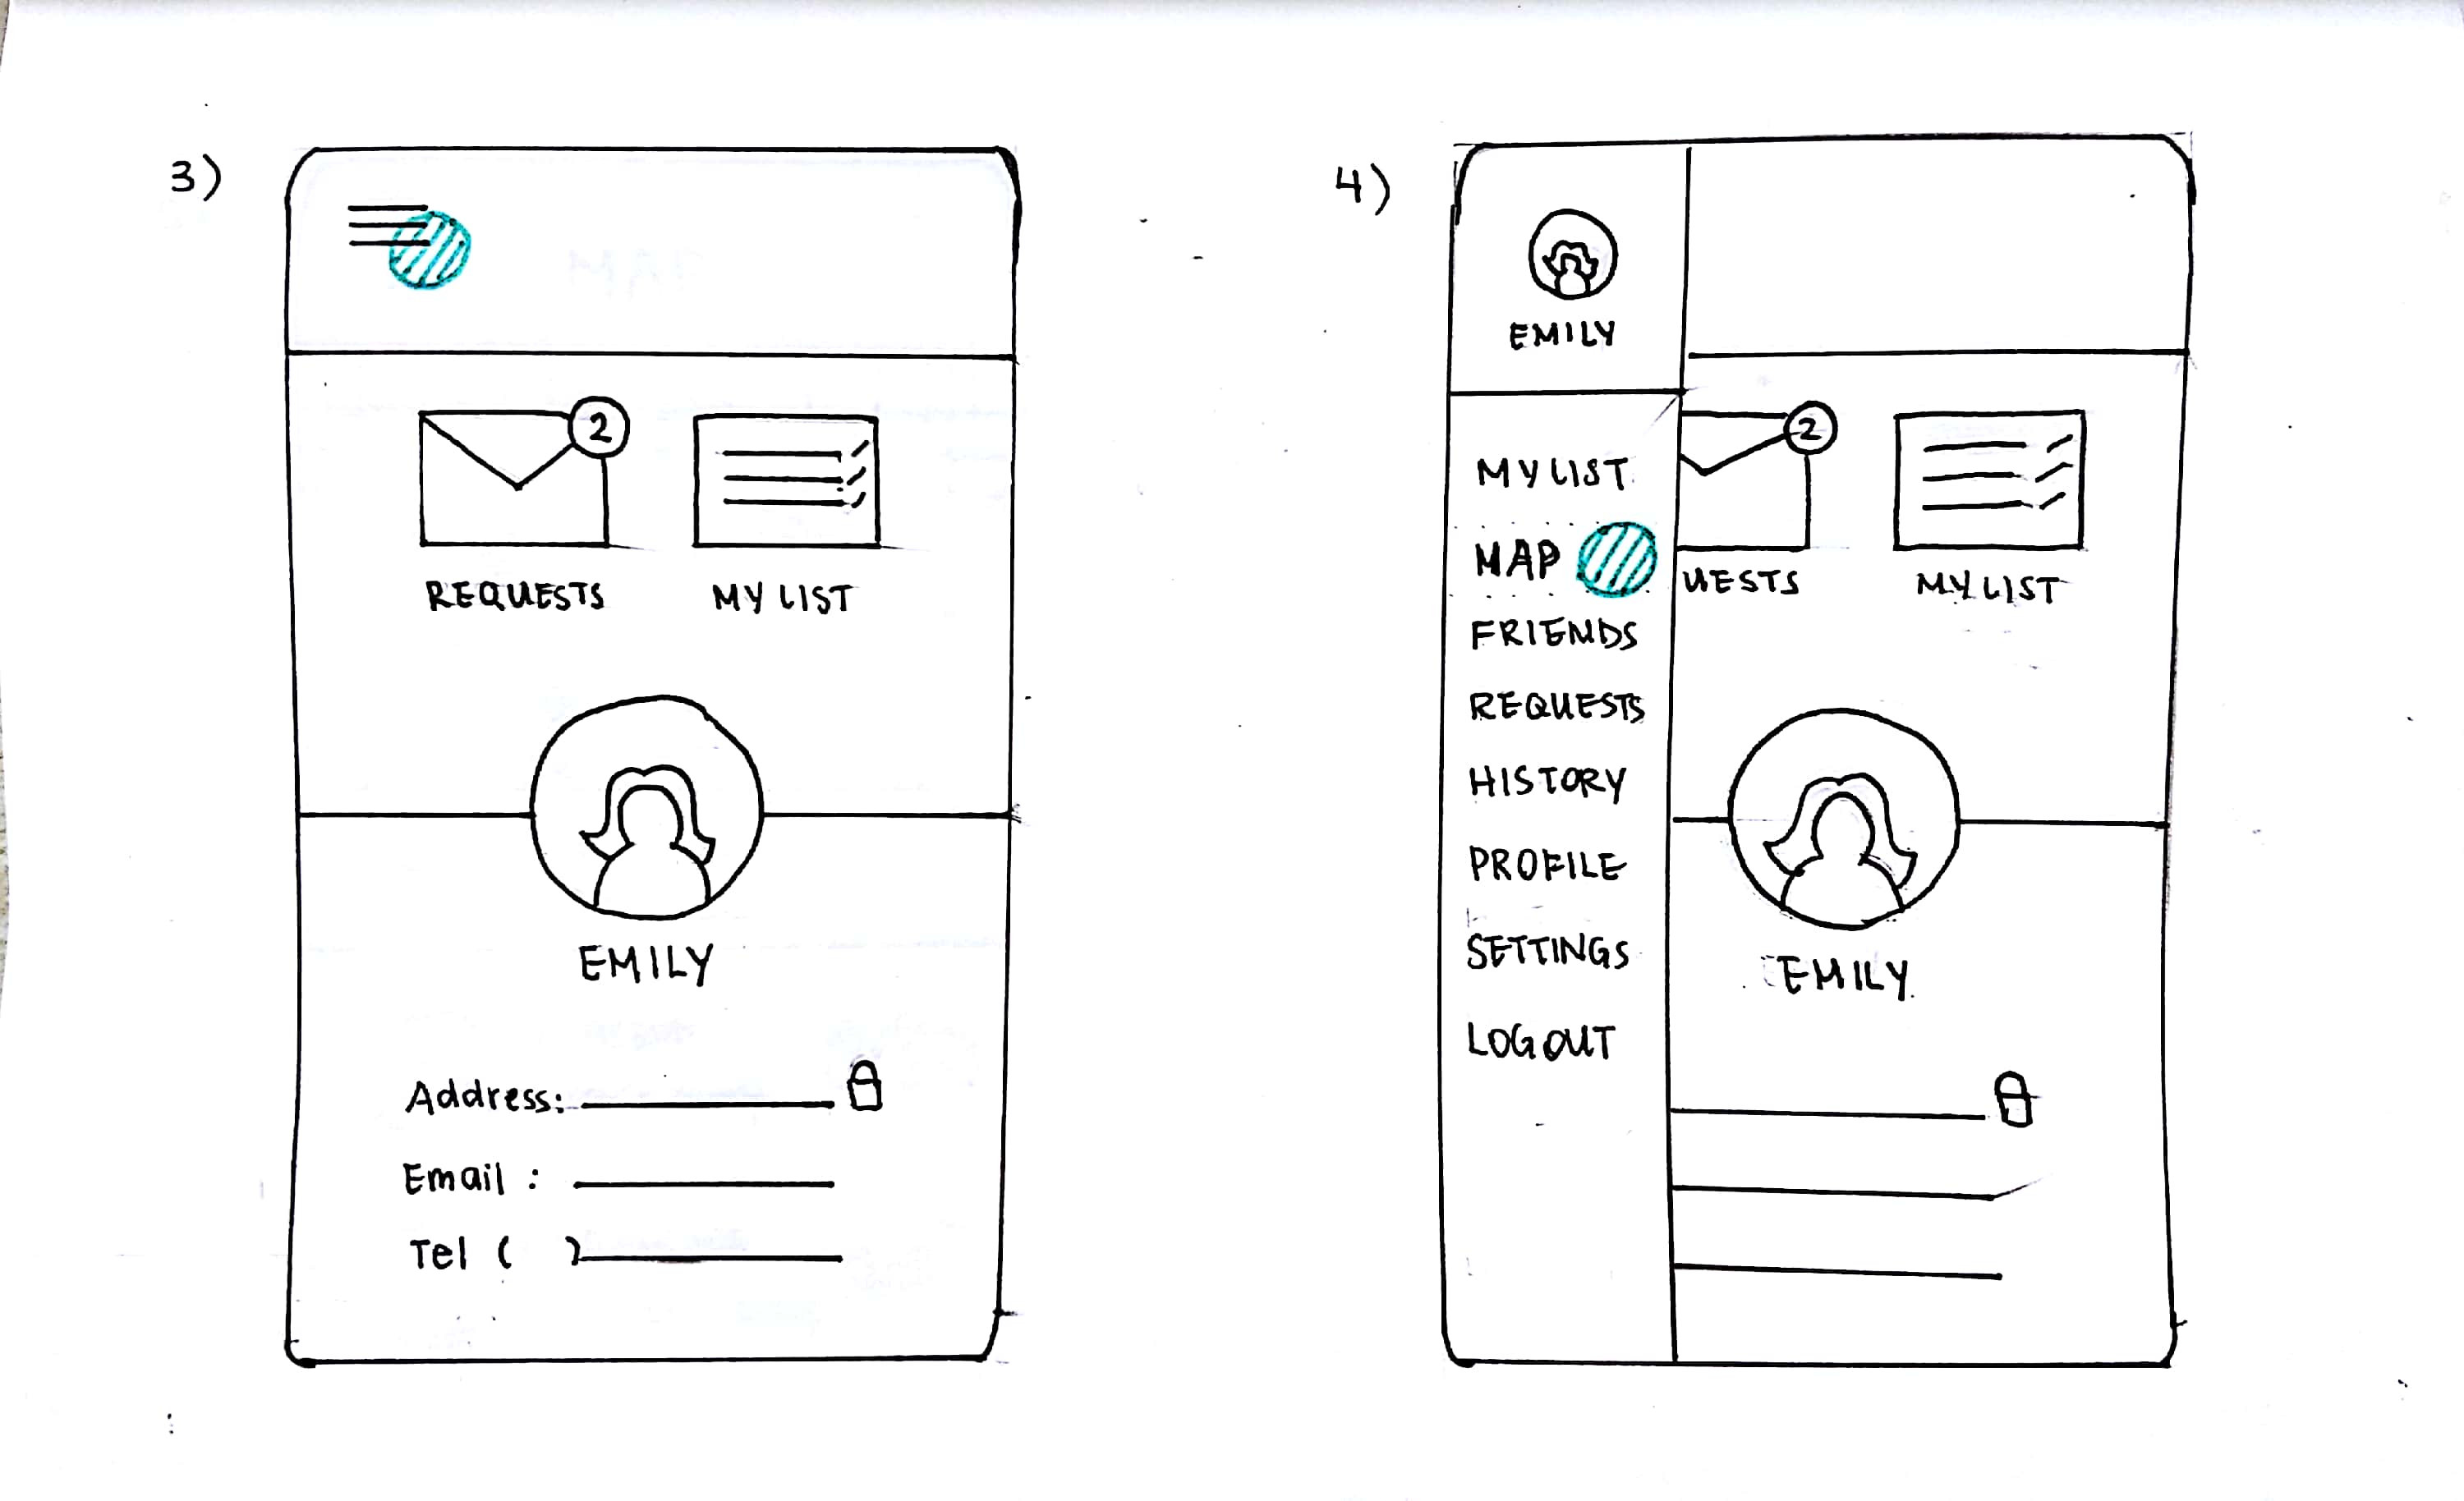 3)
2
REQUESTS
MY LIST
EMILY
Address:
Email :
Tel ( )
4)
EMILY
MY LIST
MAP
FRIENDS
REQUESTS
HISTORY
PROFILE
SETTINGS
LOGOUT
2
UESTS
MY LIST
EMILY